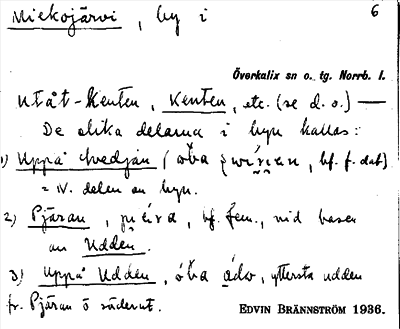 Miekojärvi, by i 6
Överkalix sn o. tg. Norrb. l.
Utåt-Kenten, Kenten, etc. (se d. o.) —
De olika delarna i byn kallas:
1) Uppå hvedjan ( bf. f. dat)
= N. delen av byn.
2) Pjäran, bf. fem., vid basen
av Udden.
3) Uppå Udden, yttersta udden
fr. Pjäran o söderut.
EDVIN BRÄNNSTRÖM 1936.